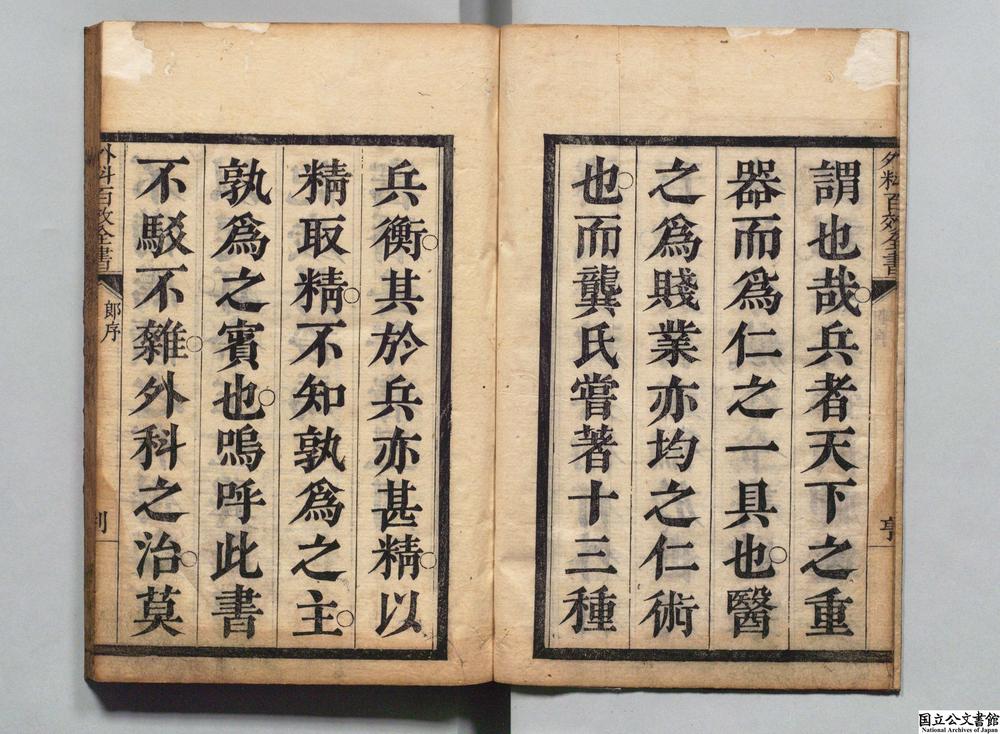 外科百效全書
謂也哉○兵者天下之重
器而爲仁之一具也○醫
之爲賤業亦均之仁術
也○而龔氏嘗著十三種
兵衡○其於兵亦甚精○以
精取精○不知孰爲之主○
孰爲之賓也○嗚呼此書
不駁不雜○外科之治○莫
外科百效全書
郎序
国立公文書館
National Archives of Japan